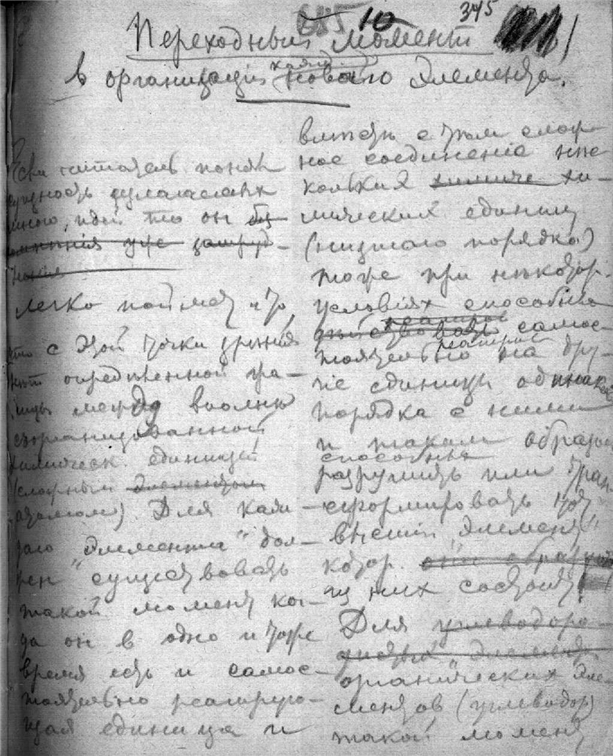 685 10 345
Переходный момент
в организации каждаго новаго элемента.
Если читатель понял
сущность
мною, идеи то он без
уже
легко поймет что
что с этой точки зрения
нет определенной гра-
ницы между вполне
сорганизованной
химическ. единицей
(сложный элементом
атомом) Для кажд-
аго "элемента" дол-
жен существовать
такой момент ко-
гда он в одно и тоже
время есть и самос-
тоятельно реагирую-
щая единица и
вместе с тем слож-
ное соединение не-
колькиз химиче хи-
мических единиц
(низшаго порядка)
тоже при некотор.
условіях способно
действовать самос-
тоятельно реагиров на дру-
гие единицы одинаков
порядка с ними
и таким образом
способныя
разрушить или тран-
сформировать тот
высший "элемент"
котор. они образуют
из них состоит
Для углеводоро-
элемента
органических эле-
ментов (углеводор)
такой момент